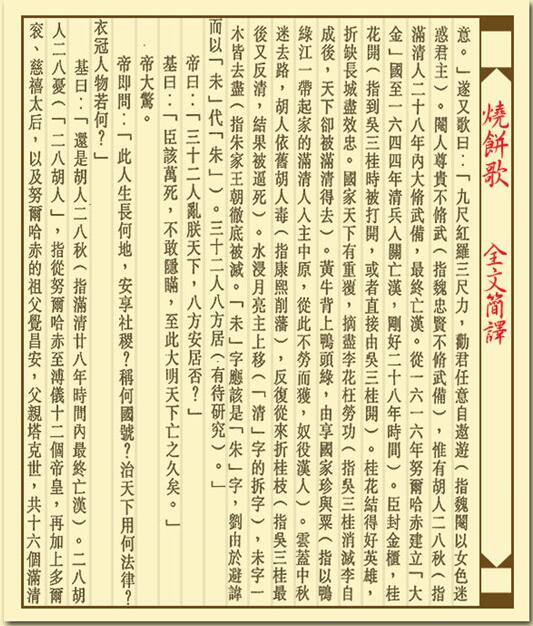 燒餅歌 全文簡譯
意。」遂又歌曰：「九尺紅羅三尺力，勸君任意自遨遊（指魏閹以女色迷
惑君主）。閹人尊貴不脩武（指魏忠賢不脩武備），惟有胡人二八秋（指
滿清人二十八年內大脩武備，最終亡漢。從一六一六年努爾哈赤建立「大
金」國至一六四四年清兵人關亡漢，剛好二十八年時間）。臣封金櫃，桂
花開（指到吳三桂時被打開，或者直接由吳三桂開）。桂花結得好英雄，
折缺長城盡效忠。國家天下有重覆，摘盡李花枉勞功（指吳三桂消滅李自
成後，天下卻被滿清得去）。黃牛背上鴨頭綠，由享國家珍與粟（指以鴨
綠江一帶起家的滿清人人主中原，從此不勞而獲，奴役漢人）。雲蓋中秋
迷去路，胡人依舊胡人毒（指康熙削藩），反復從來折桂枝（指吳三桂最
後又反清，結果被逼死）。水浸月亮主上移（「清」字的拆字），未字一
木皆去盡（指朱家王朝徹底被滅。「未」字應該是「朱」字，劉由於避諱
而以「未」代「朱」）。三十二人八方居（有待研究）。」
帝曰：「三十二人亂朕天下，八方安居否？」
基曰：「臣該萬死，不敢隱瞞，至此大明天下亡之久矣。」
帝大驚。
帝即問：「此人生長何地，安享社稷？稱何國號？治天下用何法律？
衣冠人物若何？」
基曰：「還是胡人二八秋（指滿清廿八年時間內最終亡漢）。二八胡
人二八憂（「二八胡人」，指從努爾哈赤至溥儀十二個帝皇，再加上多爾
袞、慈禧太后，以及努爾哈赤的祖父覺昌安，父親塔克世，共十六個滿清